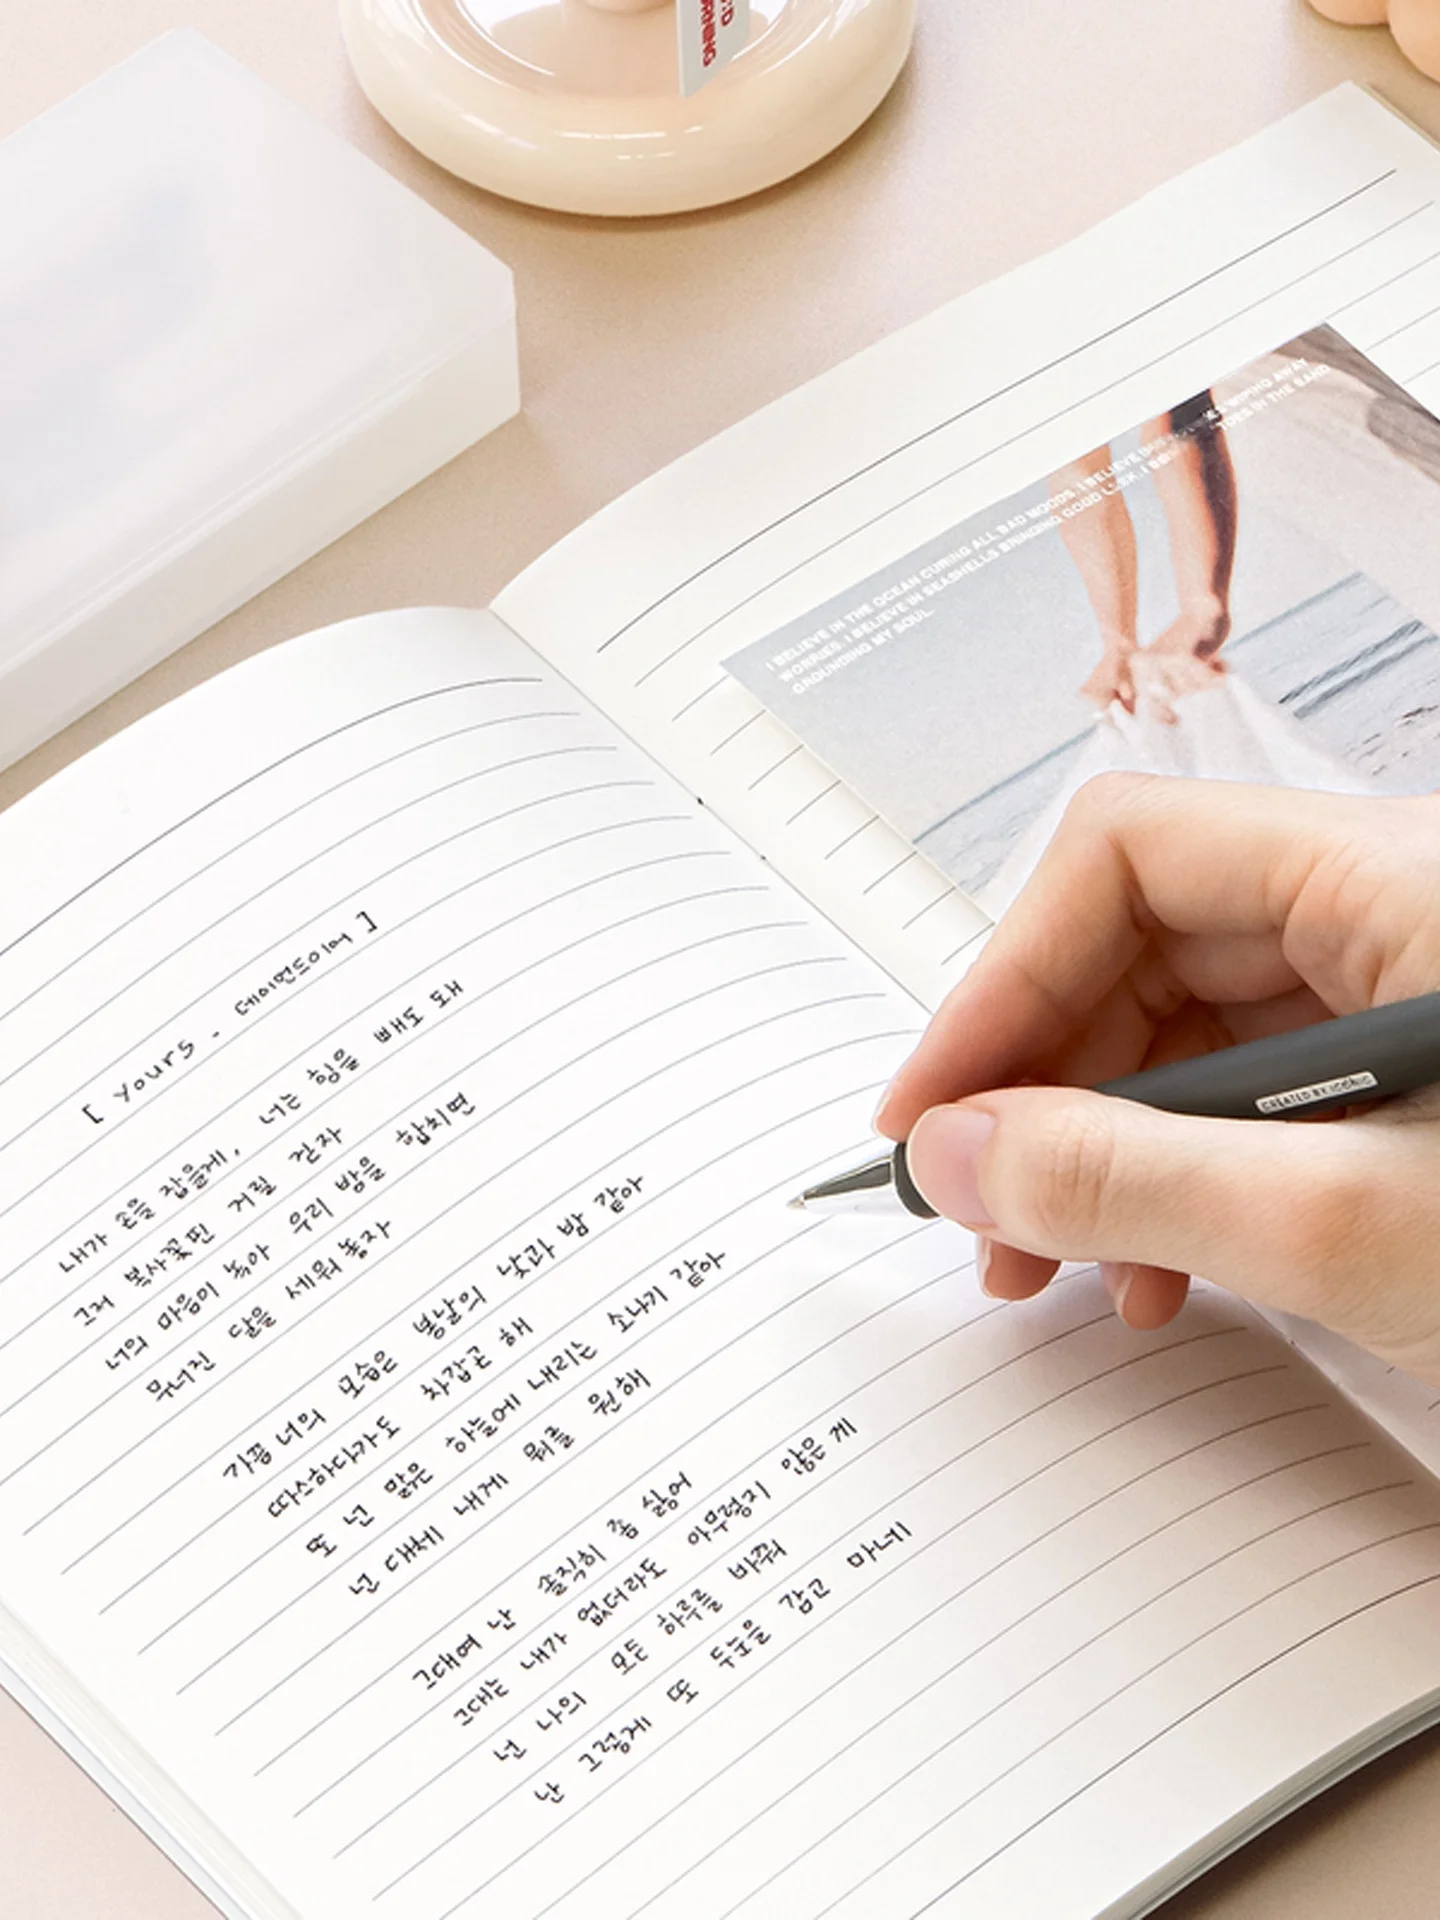 RNING
I BELIEVE IN THE OCEAN CURING ALL BAD MOODS. I BELIEVE WIPING AWAY
WORRIES. I BELIEVE IN SEASHELLS BRINGING GOOD LUCK. I IN THE SAND
GROUNDING MY SOUL.
[ yours - 데이먼드이어 ]
내가 손을 잡을게, 너는 힘을 빼도 돼
그저 복사꽃핀 거릴 걷자
너의 마음이 녹아 우리 방을 합치면
무너진 달을 세워 놓자
가끔 너의 모습은 봄날의 낮과 밤 같아
따스하다가도 차갑곤 해
또 넌 맑은 하늘에 내리는 소나기 같아
넌 대체 내게 뭐를 원해
그대여 난 솔직히 좀 싫어
그대는 내가 없더라도 아무렇지 않은 게
넌 나의 모든 하루를 바꿔
난 그렇게 또 두눈을 감고 마네
CREATED BY ICONIC